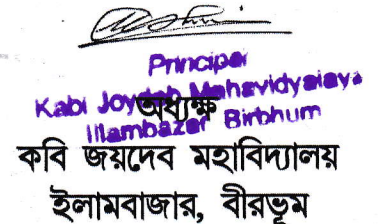 Principal
Kabi Joydeb Mahavidyalaya
অধ্যক্ষ
Illambazar Birbhum
কবি জয়দেব মহাবিদ্যালয়
ইলামবাজার, বীরভূম